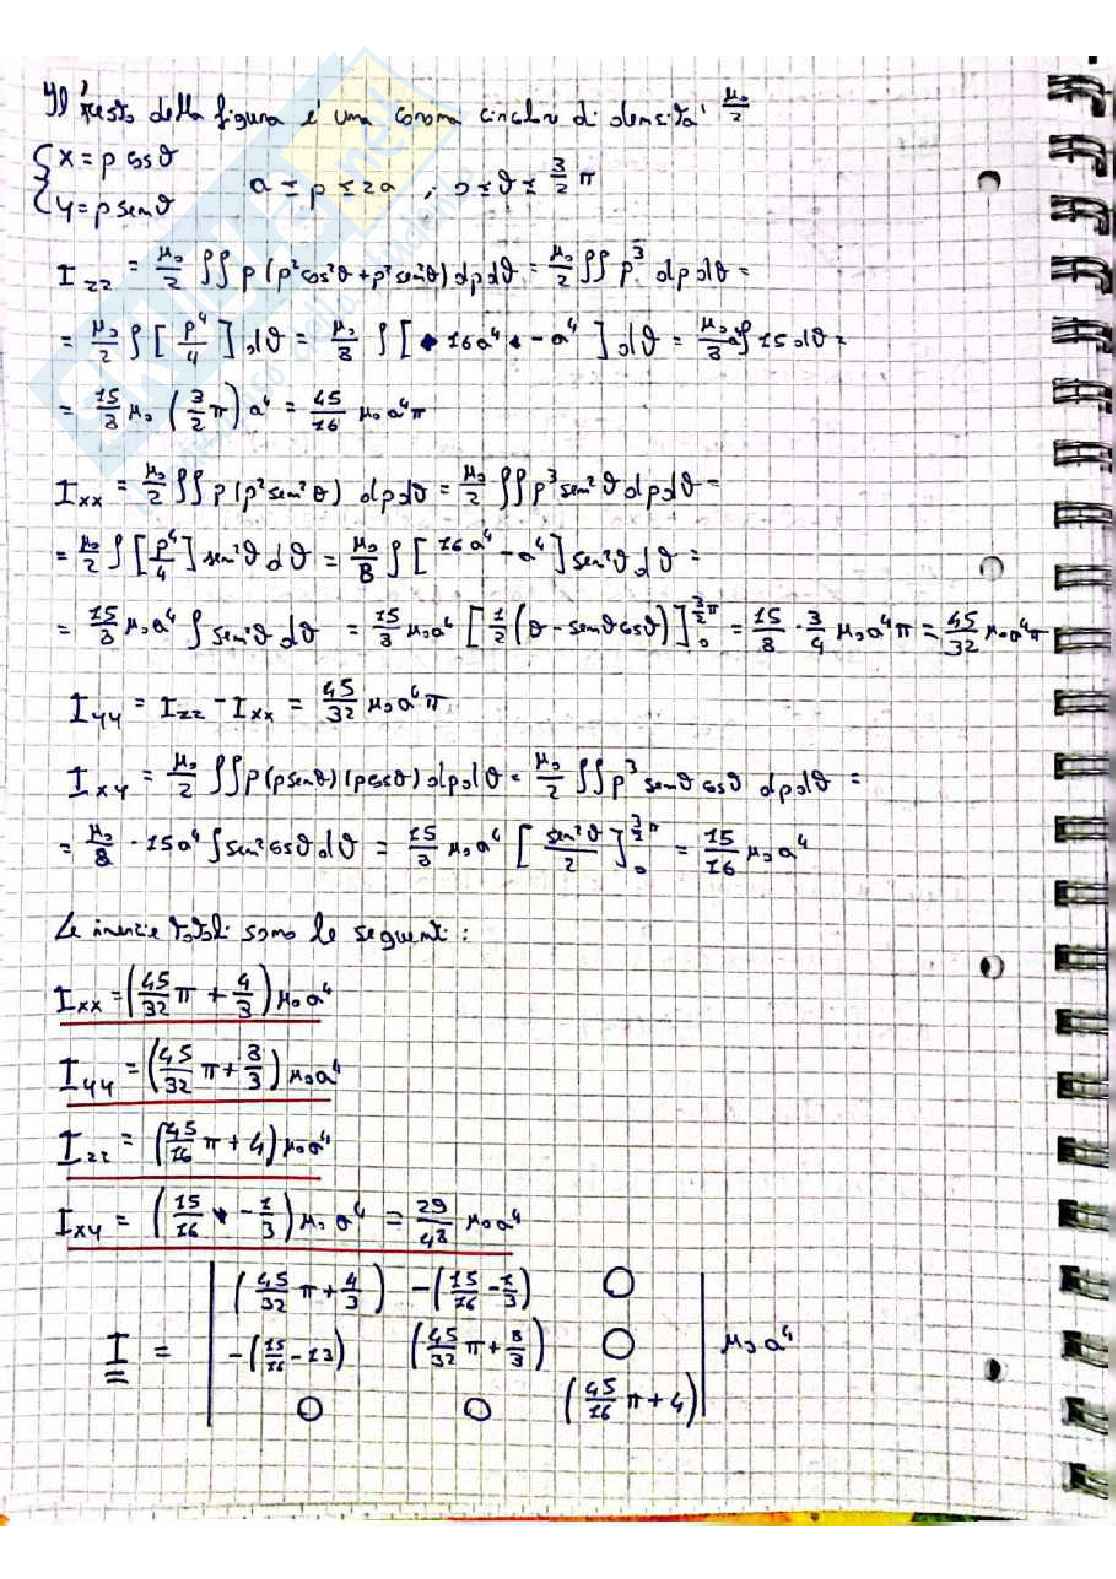 Il resto della figura è una corona circolare di densità μ₀/2
{ x = ρ cosϑ
{ y = ρ senϑ
a ≤ ρ ≤ 2a , 0 ≤ ϑ ≤ 3/2 π
Izz = μ₀/2 ∬ ρ (ρ²cos²ϑ + ρ²sen²ϑ) dρdϑ = μ₀/2 ∬ ρ³ dρdϑ =
= μ₀/2 ∫ [ρ⁴/4] dϑ = μ₀/8 ∫ [16a⁴ - a⁴] dϑ = μ₀/8 a⁴ ∫ 15 dϑ =
= 15/8 μ₀ (3/2 π) a⁴ = 45/16 μ₀ a⁴ π
Ixx = μ₀/2 ∬ ρ (ρ² sen²ϑ) dρdϑ = μ₀/2 ∬ ρ³ sen²ϑ dρdϑ =
= μ₀/2 ∫ [ρ⁴/4] sen²ϑ dϑ = μ₀/8 ∫ [16a⁴ - a⁴] sen²ϑ dϑ =
= 15/8 μ₀a⁴ ∫ sen²ϑ dϑ = 15/8 μ₀a⁴ [1/2 (ϑ - senϑcosϑ)]₀^{3/2 π} = 15/8 · 3/4 μ₀a⁴π = 45/32 μ₀a⁴π
Iyy = Izz - Ixx = 45/32 μ₀a⁴π
Ixy = μ₀/2 ∬ ρ (ρ senϑ) (ρ cosϑ) dρdϑ = μ₀/2 ∬ ρ³ senϑ cosϑ dρdϑ =
= μ₀/8 · 15a⁴ ∫ sen² cosϑ dϑ = 15/8 μ₀a⁴ [sen²ϑ/2]₀^{3/2 π} = 15/16 μ₀a⁴
Le inerzie totali sono le seguenti:
Ixx = (45/32 π + 4/3) μ₀a⁴
Iyy = (45/32 π + 8/3) μ₀a⁴
Izz = (45/16 π + 4) μ₀a⁴
Ixy = (15/16 - 1/3) μ₀a⁴ = 29/48 μ₀a⁴
I = | (45/32 π + 4/3) -(15/16 - 1/3) 0 |
| -(15/16 - 13) (45/32 π + 8/3) 0 | μ₀a⁴
| 0 0 (45/16 π + 4) |